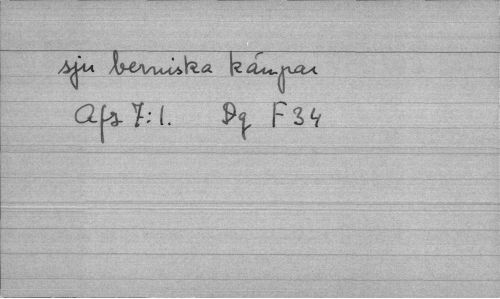 sju berniska kámpar
Afz 7:1. Dq F 34